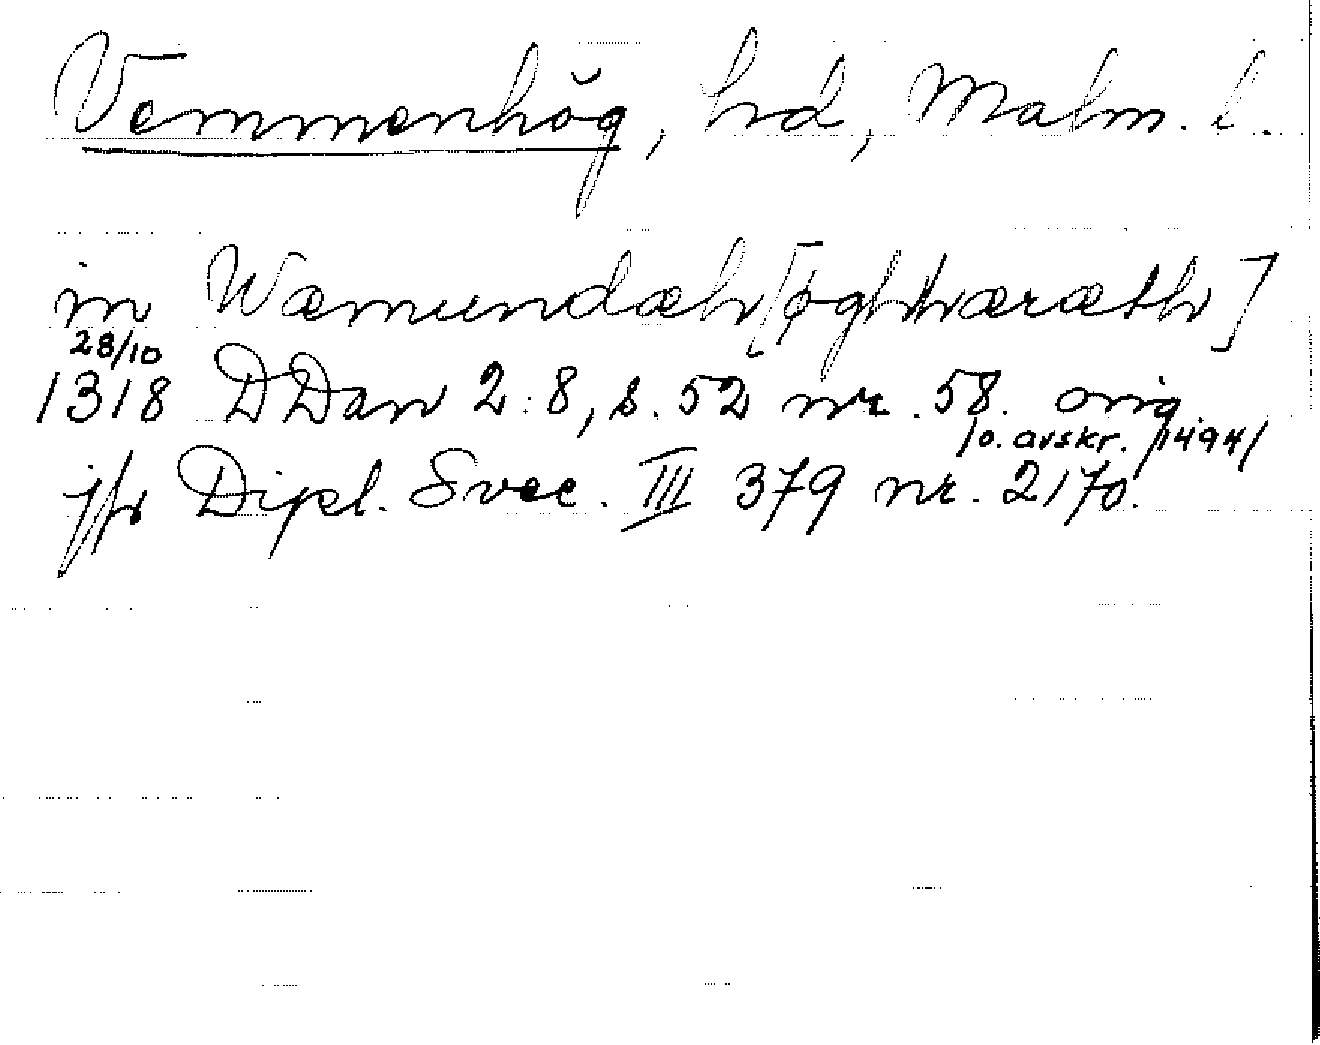 Vemmenhög, hd, Malm. l.
in Wæmundæh[øghhæræth]
28/10
1318 DDan 2:8, s. 52 nr. 58. orig.
/o. avskr. 1494/
jfr Dipl. Svec. III 379 nr. 2170.